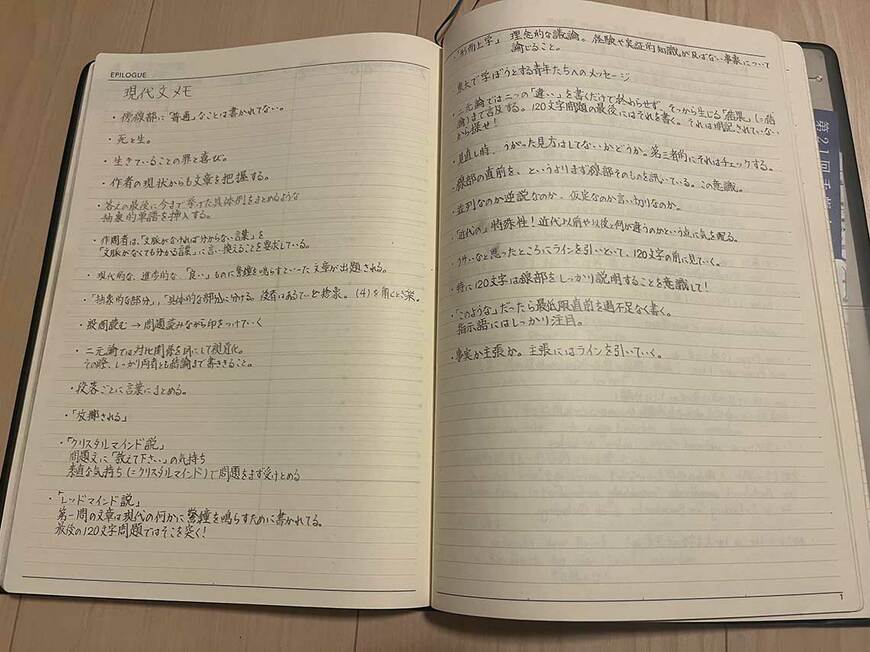 EPILOGUE
現代文メモ
・傍線部に「普通」なことは書かれてない。
・死と生。
・生きていることの罪と喜び。
・作者の現状からも文章を把握する。
・答えの最後に今まで挙げた具体例をまとめるような
抽象的単語を挿入する。
・作問者は、「文脈がなければ分からない言葉」を
「文脈がなくても分かる言葉」に言い換えることを要求している。
・現代的な、進歩的な、「良い」ものに警鐘を鳴らすといった文章が出題される。
・「抽象的な部分」、「具体的な部分」に分ける。後者はあるていど捨象。(4)を解くとき楽。
・設問読む→問題読みながら印をつけていく
・二元論では対比関係を印にして視覚化。
その際、しっかり両者とも結論まで書ききること。
・段落ごとに言葉にまとめる。
・「放擲される」
・「クリスタルマインド説」
問題文に「教えて下さい」の気持ち
素直な気持ち(=クリスタルマインド)で問題をまず受けとめる
・「レッドマインド説」
第一問の文章は現代の何かに警鐘を鳴らすために書かれてる。
最後の120文字問題ではそこを突く!
・「形而上学」 理念的な議論。経験や実証的知識が及ばない事象について
論じること。
東大で学ぼうとする青年たちへのメッセージ
・二元論では二つの「違い」を書くだけで終わらせず、そっから生じる「結果」(=結
論)まで言及する。120文字問題の最後にはそれを書く。それは明記されていない
から探せ!
・見直し時、うがった見方はしてないかどうか。第三者的にそれはチェックする。
・線部の直前を、というよりまず線部そのものを訊いている。この意識。
・並列なのか逆説なのか。仮定なのか言い切りなのか。
・「近代の」特殊性!近代以前や以後と何が違うのかという点に気を配る。
・うサいなと思ったところにラインを引いといて、120文字の前に見ていく。
・特に120文字は線部をしっかり説明することを意識して!
・「このような」だったら最低限直前を過不足なく書く。
指示語にはしっかり注目。
・事実か主張か。主張にはラインを引いていく。
1
第21回